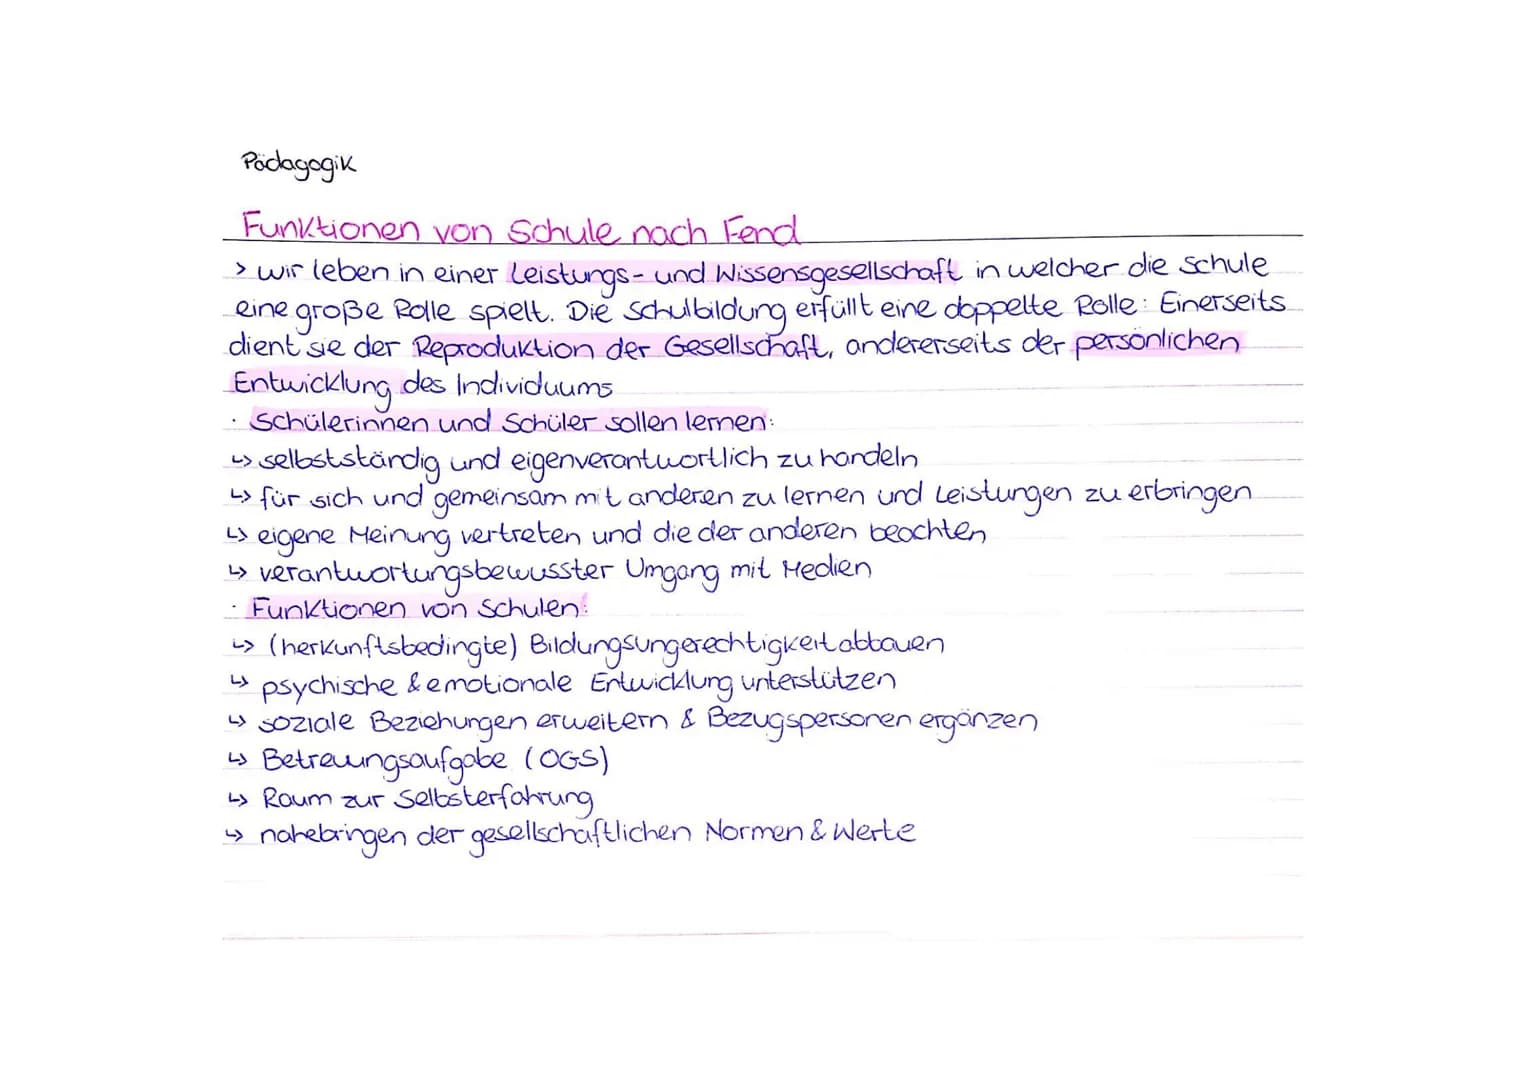 Pädagogik
Funktionen von Schule nach Fend
> wir leben in einer Leistungs- und Wissensgesellschaft in welcher die Schule
eine große Rolle spielt. Die Schulbildung erfüllt eine doppelte Rolle: Einerseits
dient sie der Reproduktion der Gesellschaft, andererseits der persönlichen
Entwicklung des Individuums
· Schülerinnen und Schüler sollen lernen:
↳ selbstständig und eigenverantwortlich zu handeln
↳ für sich und gemeinsam mit anderen zu lernen und Leistungen zu erbringen
↳ eigene Meinung vertreten und die der anderen beachten
↳ verantwortungsbewusster Umgang mit Medien
· Funktionen von Schulen:
↳ (herkunftsbedingte) Bildungsungerechtigkeit abbauen
↳ psychische & emotionale Entwicklung unterstützen
↳ soziale Beziehungen erweitern & Bezugspersonen ergänzen
↳ Betreuungsaufgabe (OGS)
↳ Raum zur Selbsterfahrung
↳ nahebringen der gesellschaftlichen Normen & Werte